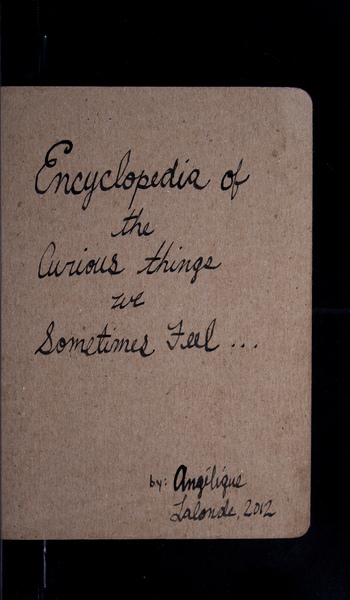 Encyclopedia of
the
Curious things
we
Sometimes Feel ...
by: Angélique
Lalonde, 2012